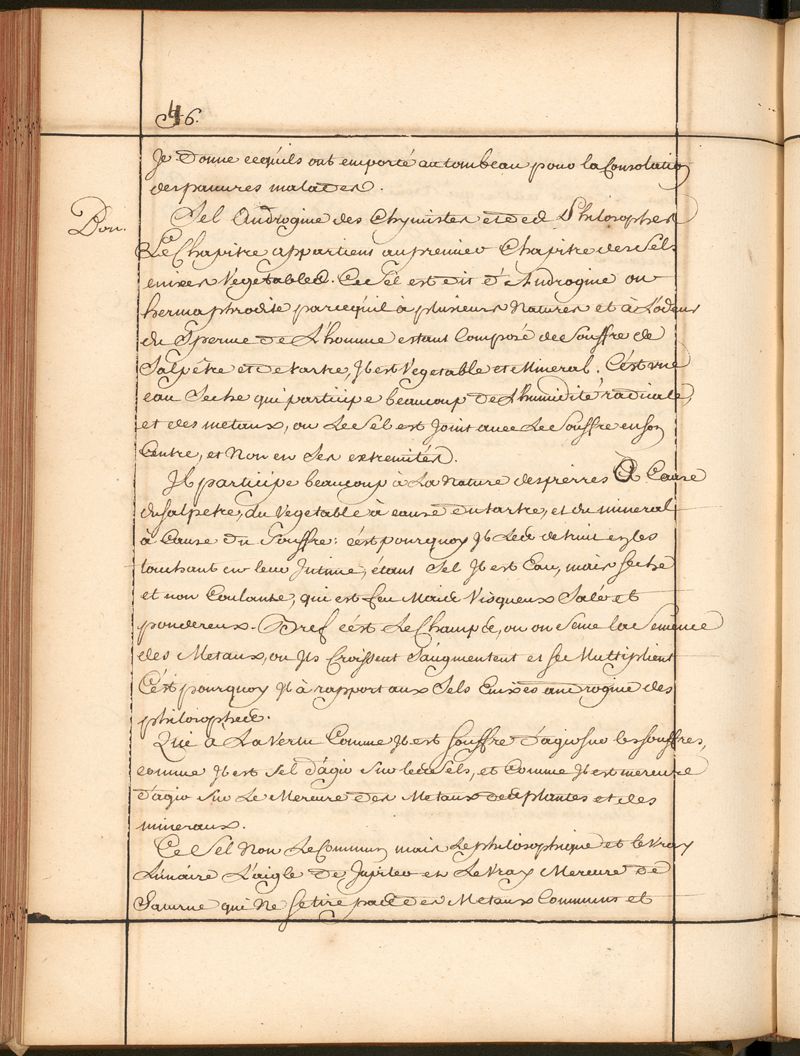 46.
Je donne cequils ont emporté au tombeau pour la Consolation
des pauures malades.
Bon.
Sel Androgine des Chymistes et des Philosophes
Ce Chapitre appartient au premier Chapitre des Sels
enixes Vegetables. Ce Sel est dit d'Androgine ou
hermaphrodite parcequil à plusieurs Natures et à L'odeur
du Sperme de L'homme estant Composé de Souffre de
Salpêtre et de tartre, Il est Vegetable et Mineral. C'est une
eau Seche qui participe beaucoup de L'humidité radicale
et des metaux, ou Le Sel est Joint auec Le Souffre en son
Centre, et Non en Ses extremités.
Il participe beaucoup à La Nature des pierres A Cause
du salpetre, du Vegetable à cause du tartre, et du mineral
à Cause du Souffre: c'est pourquoy Il Les detruit en les
touchant en leur Intime, étant Sel Il est Eau, mais seche
et non Coulante, qui est feu Mais Visqueux Salé et
pondereux. Bref c'est Le Champs, ou on Seme la Semence
des Metaux, ou Ils Croissent S'augmentent et se Multiplient
C'est pourquoy Il à rapport aux Sels Enixes androgine des
philosophes.
Qui a La Vertu Comme Il est souffre d'agir sur les souffres,
comme Il est Sel d'agir Sur les Sels, et Comme Il est mercure
d'agir Sur Le Mercure des Metaux des plantes et des
mineraux.
Ce Sel Non Le Commun mais Le philosophique et le Vray
Lunaire L'aigle de Jupiter est Le Vray Mercure de
Saturne qui Ne se tire pas des Metaux Communs et